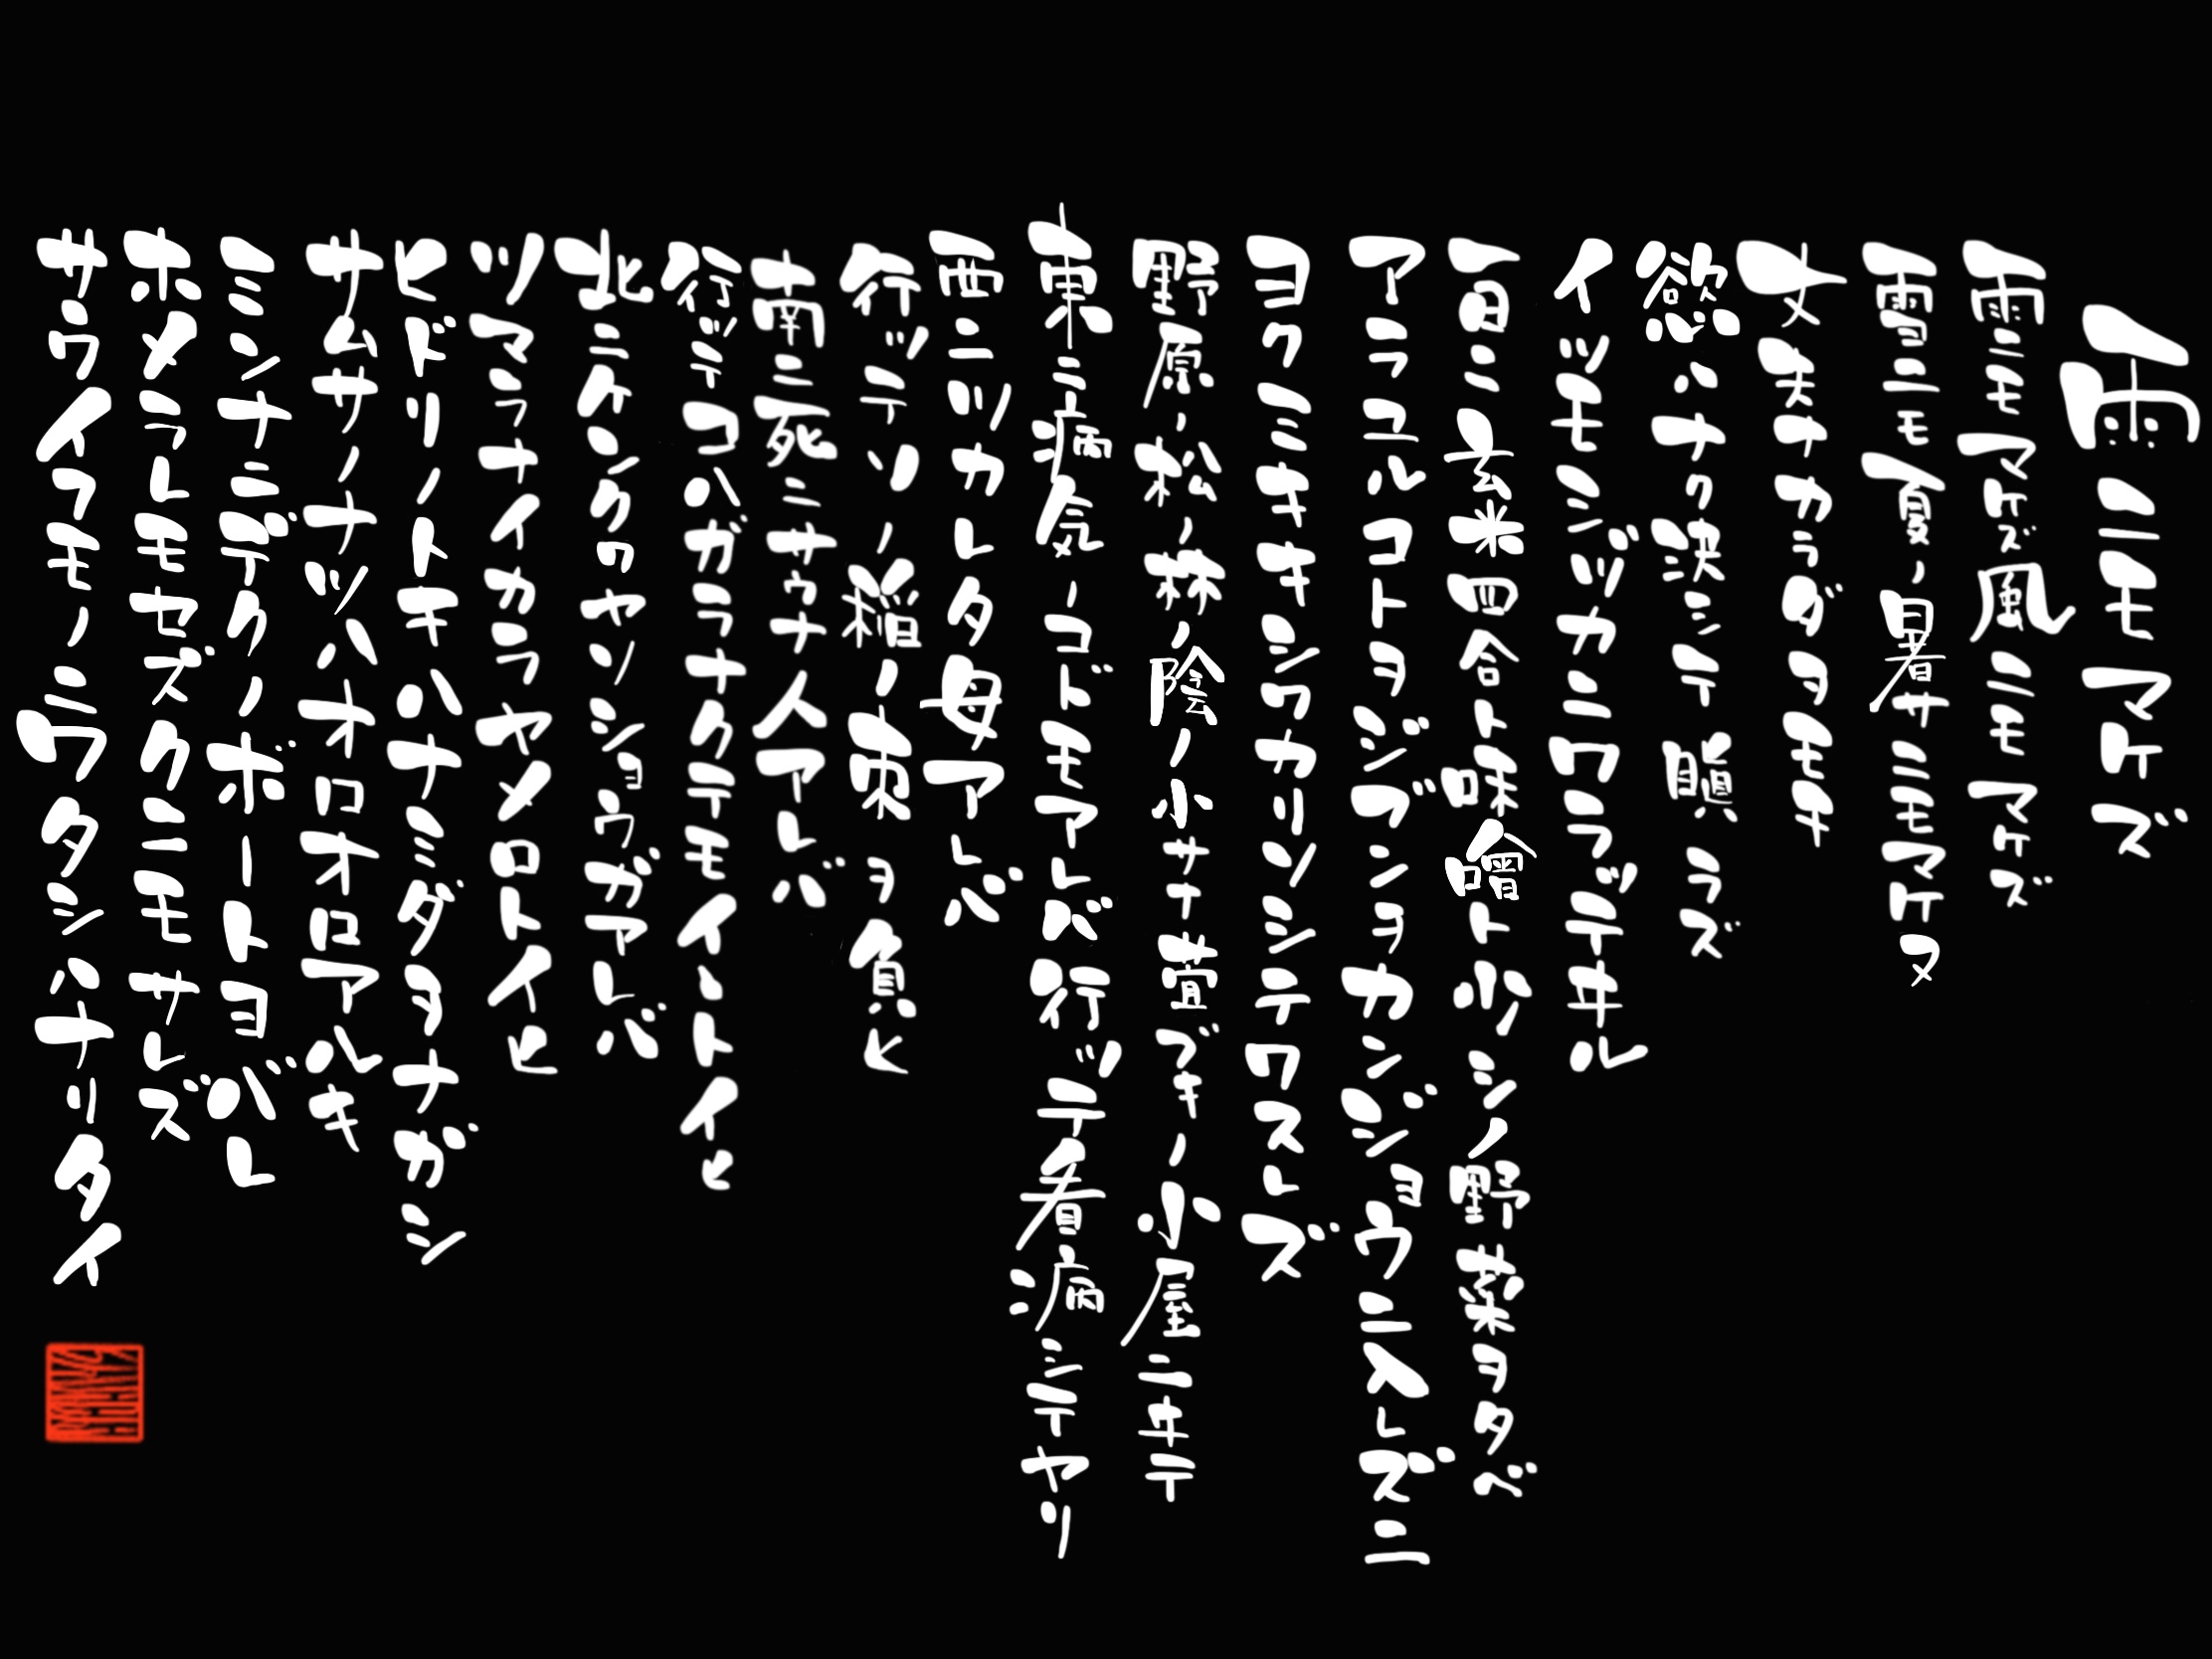 雨ニモマケズ
雨ニモマケズ風ニモマケズ
雪ニモ夏ノ暑サニモマケヌ
丈夫ナカラダヲモチ
慾ハナク決シテ瞋ラズ
イツモシヅカニワラッテヰル
一日ニ玄米四合ト味噌ト少シノ野菜ヲタベ
アラユルコトヲジブンヲカンジョウニ入レズニ
ヨクミキキシワカリソシテワスレズ
野原ノ松ノ林ノ陰ノ小サナ萓ブキノ小屋ニヰテ
東ニ病気ノコドモアレバ行ッテ看病シテヤリ
西ニツカレタ母アレバ
行ッテソノ稲ノ束ヲ負ヒ
南ニ死ニサウナ人アレバ
行ッテコハガラナクテモイヽトイヒ
北ニケンクヮヤソショウガアレバ
ツマラナイカラヤメロトイヒ
ヒドリノトキハナミダヲナガシ
サムサノナツハオロオロアルキ
ミンナニデクノボートヨバレ
ホメラレモセズクニモサレズ
サウイフモノニワタシハナリタイ